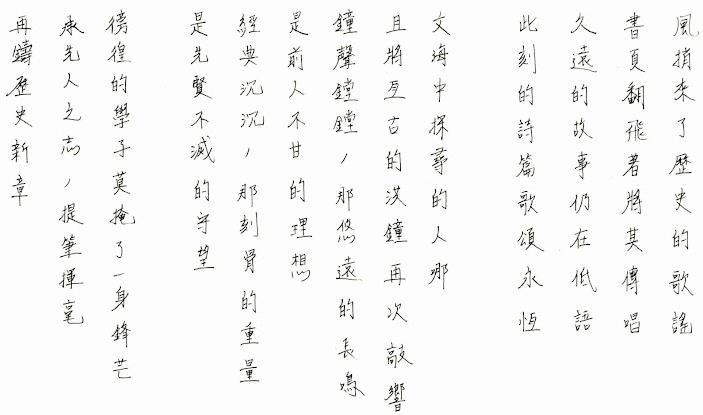 風捎來了歷史的歌謠
書頁翻飛著將其傳唱
久遠的故事仍在低語
此刻的詩篇歌頌永恆
文海中探尋的人哪
且將亙古的洪鐘再次敲響
鐘聲鏜鏜，那悠遠的長鳴
是前人不甘的理想
經典沉沉，那刻骨的重量
是先賢不滅的守望
徬徨的學子莫掩了一身鋒芒
承先人之志，提筆揮毫
再鑄歷史新章